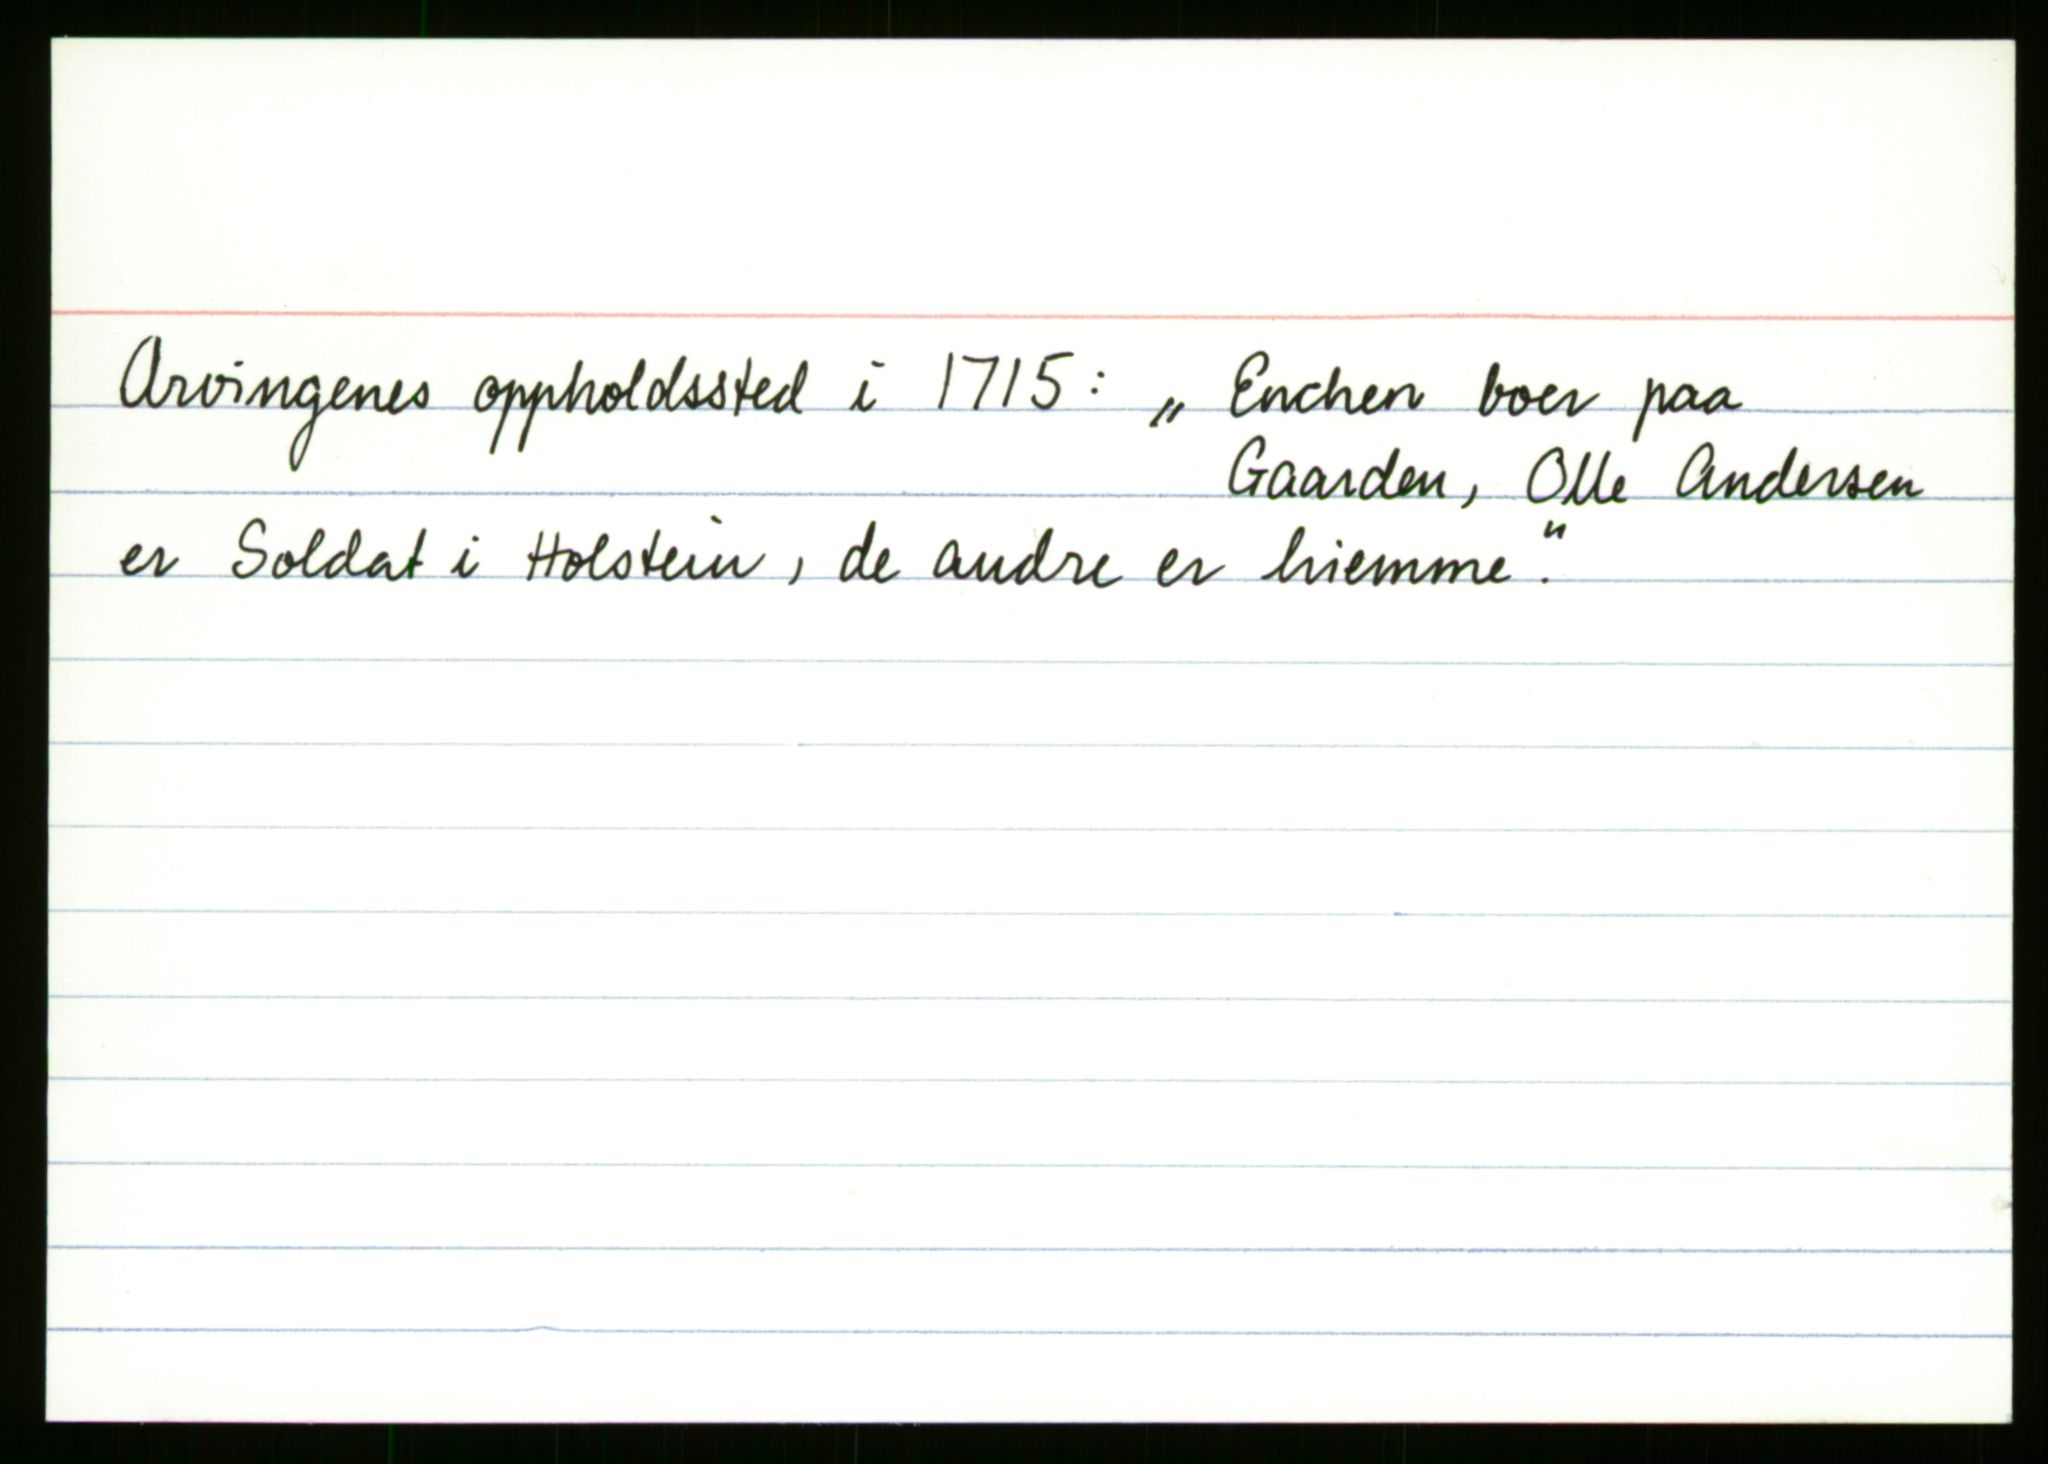 Arvingenes oppholdssted i 1715: „Enchen boer paa
Gaarden, Olle Andersen
er Soldat i Holstein, de andre er hiemme."